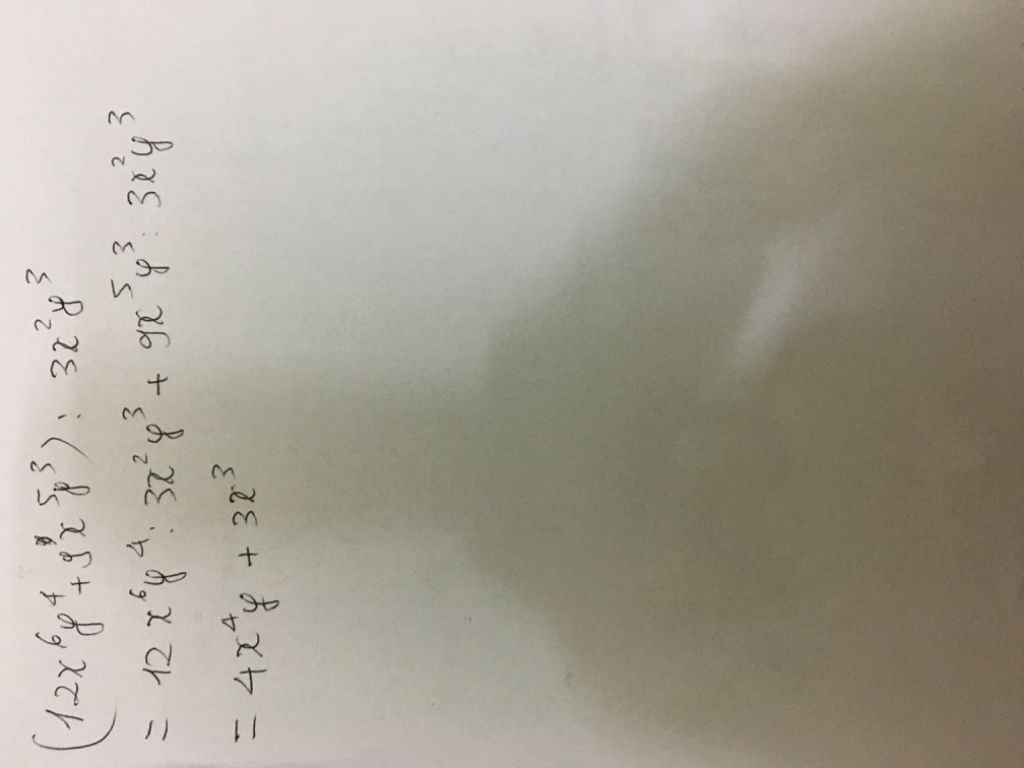 (12x⁶y⁴ + 9x⁵y³) : 3x²y³
= 12x⁶y⁴ : 3x²y³ + 9x⁵y³ : 3x²y³
= 4x⁴y + 3x³